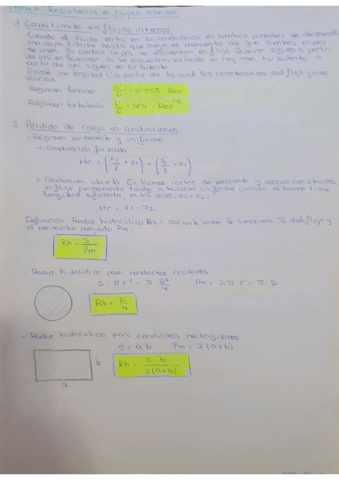 Tema 6: Resistencia en flujos internos
1. Capa límite en flujos internos:
Cuando el fluido entra en la conducción en ambas paredes se desarrolla
una capa límite hasta que llega el momento de que ambas capas
se unen. Si ambas capas se encuentran en flujo laminar sigue a partir
de ahí en laminar. Si se encuentran estando en régimen turbulento a
partir de ahí siguen en turbulento.
Existe una longitud L' a partir de la cual las características del flujo ya no
varían.
Régimen laminar L'/D = 0'058 · Re_D
Régimen turbulento L'/D = 4'4 · Re_D
2. Pérdida de carga en conducciones
- Régimen permanente y uniforme
→ Conducción forzada
Hr = (P1/γ + z1) - (P2/γ + z2)
→ Conducción abierta. En tramos rectos de pendiente y sección constantes,
un flujo permanente tiende a hacerse uniforme cuando el tramo tiene
longitud suficiente, en tal caso,
Hr = z1 - z2
Definición: Radio hidráulico Rh = cociente entre la sección S del flujo y
el perímetro mojado Pm.
Rh = S/Pm
- Radio hidráulico para conductos circulares
S = π r² = π D²/4 Pm = 2 π r = π D
Rh = D/4
- Radio hidráulico para conductos rectangulares
S = a b Pm = 2 (a+b)
b Rh = a · b / 2(a+b)
a